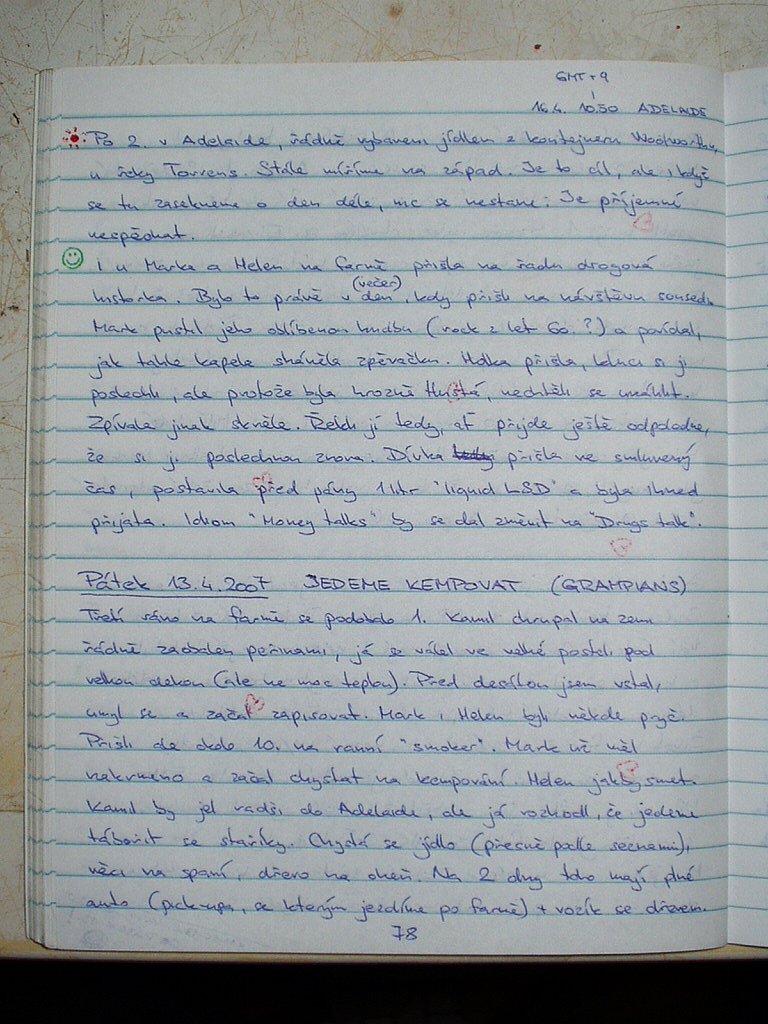 GMT+9
16.4. 10.50 ADELAIDE
Po 2. v Adelaide, řádně vybaveni jídlem z kontejneru Woolworthu,
u řeky Torrens. Stále míříme na západ. Je to cíl, ale i když
se tu zasekneme o den déle, nic se nestane. Je příjemné
nespěchat.
I u Marka a Helen na farmě přišla na řadu drogová
(večer)
historka. Bylo to právě v den, kdy přišli na návštěvu sousedi.
Mark pustil jeho oblíbenou hudbu (rock z let 60. ?) a povídal,
jak tahle kapela sháněla zpěvačku. Holka přišla, kluci si ji
poslechli, ale protože byla hrozně tlustá, nechtěli se unáhlit.
Zpívala jinak skvěle. Řekli jí tedy, ať přijde ještě odpoledne,
že si ji poslechnou znova. Dívka přišla ve smluvený
čas, postavila před pány 1 litr "liquid LSD" a byla ihned
přijata. Idiom "Money talks" by se dal změnit na "Drugs talk".
Pátek 13.4.2007 JEDEME KEMPOVAT (GRAMPIANS)
Třetí ráno na farmě se podobalo 1. Kamil chrupal na zemi
řádně zaobalen peřinami, já se válel ve velké posteli pod
velkou dekou (ale ne moc teplou). Před desátou jsem vstal,
umyl se a začal zapisovat. Mark i Helen byli někde pryč.
Přišli ale okolo 10. na ranní "smoker". Mark už měl
nakrmeno a začal chystat na kempování. Helen jakby smet.
Kamil by jel radši do Adelaide, ale já rozhodl, že jedeme
tábořit se staříky. Chystá se jídlo (přesně podle seznamu),
věci na spaní, dřevo na oheň. Na 2 dny toho mají plné
auto (pick-upa, se kterým jezdíme po farmě) + vozík se dřevem.
78